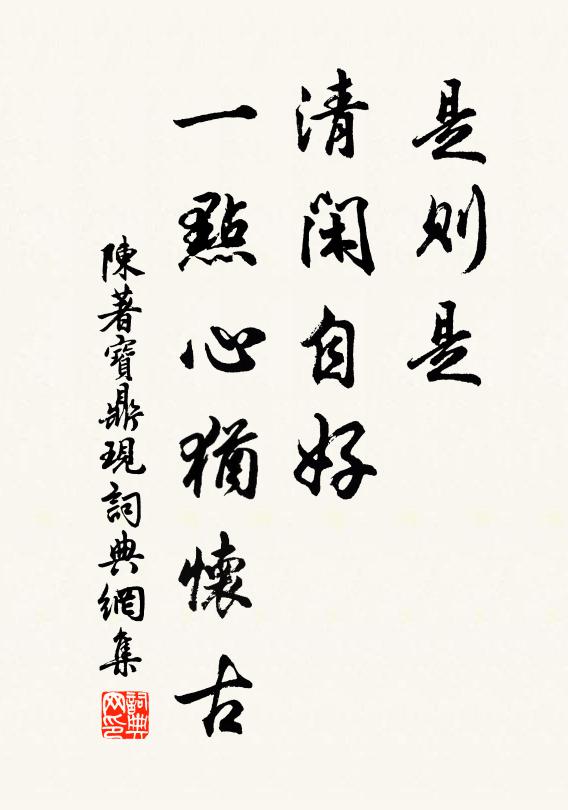 是则是
清閑自好
一點心猶懷古
陳著寶鼎現詞典網集
詞典
网印